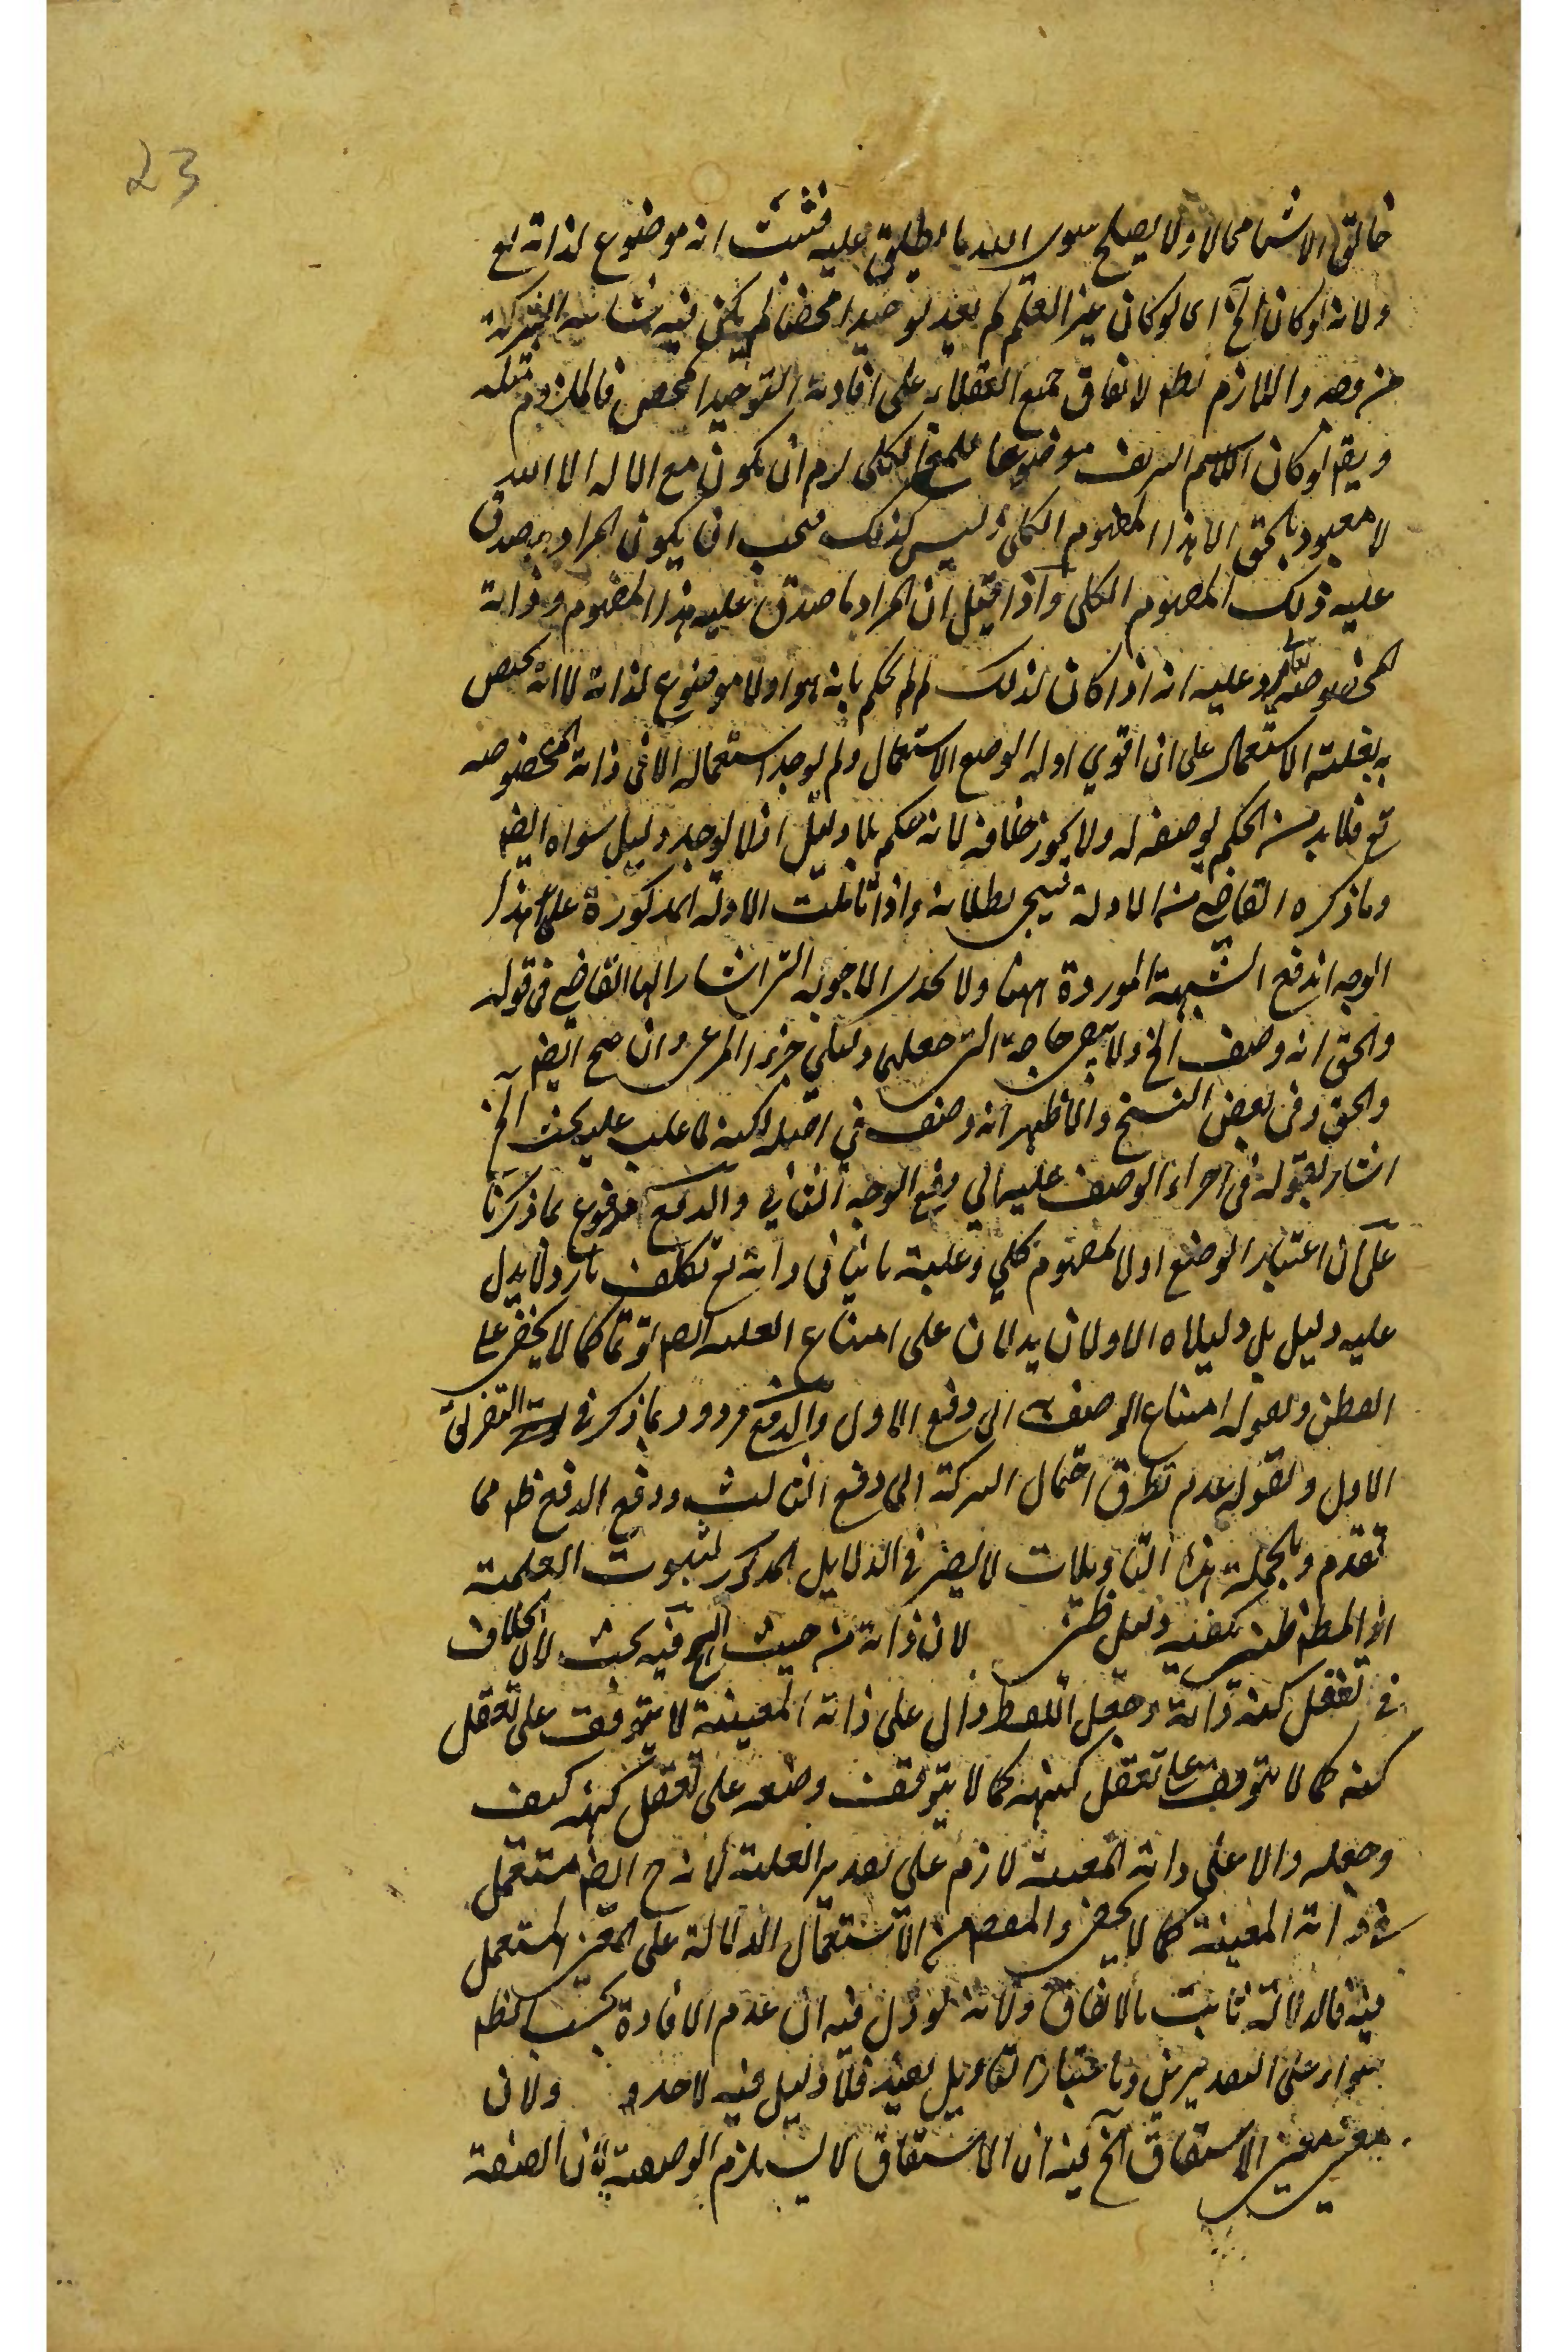 23
خالق الاشيا محالا ولا يصلح سوى الله ما يطلق عليه فثبت انه موضوع لذاته تع
ولانه لو كان الخ اى لو كان غير العلم لم يفد توحيدا محضا لم يكن فيه شائبه الشركة
واللازم بط لاتفاق جميع العقلاء على افادته التوحيد المحض فالملزوم مثله
لو كان الاسم الشريف موضوعا للمعنى الكلى لزم ان يكون مع لا اله الا الله
لا معبود بالحق الا هذا المفهوم الكلى وليس كذلك فيجب ان يكون المراد ما صدق
عليه ذلك المفهوم الكلى واذا قيل ان المراد ما صدق عليه هذا المفهوم وذاته
المخصوصة يرد عليه انه اذا كان كذلك لم لم يحكم بانه هو اولا موضوع لذاته لا انه يختص
به بغلبة الاستعمال على ان اقوى ادلة الوضع الاستعمال ولم يوجد استعماله الا فى ذاته المخصوصه
تع فلا بد من الحكم بوضعه له ولا يجوز خلافه لانه حكم بلا دليل اذ لا يوجد دليل سواه ايضا
وما ذكره القاضى من الادلة سيجى بطلانه واذا تأملت الادلة المذكورة على هذا
الوجه اندفع الشبهة الموردة ههنا ولا يجدى الاجوبه التى اشار اليها القاضى فى قوله
والحق انه وصف الخ ولا حاجة الى جعلهما دليلى جزء المدعى وان صح ايضا
والحق وفى بعض النسخ والاظهر انه وصف فى اصله لكنه لما غلب عليه بحث الخ
اشار بقوله فى اجراء الوصف عليه الى دفع الوجه الثانى والدفع مدفوع بما ذكرنا
على ان اعتبار الوضع اولا لمفهوم كلي وغلبة ثانيا فى ذاته تع تكلف بارد لا يدل
عليه دليل بل دليلاه الاولان يدلان على امتناع الغلبه ايضا لو تما كما لا يخفى على
الفطن وبقوله امتناع الوصف به الى دفع الاول والدفع مردود بما ذكر فى التقرير
الاول وبقوله عدم تطرق احتمال الشركة الى دفع الثالث ودفع الدفع ظهر مما
تقدم وبالجملة هذه التاويلات لا يضر فى الدلايل المذكور لثبوت العلمية
اذ المط ظنى يكفيه دليل ظنى لان ذاته من حيث الخ فيه بحث لان الخلاف
فى تعقل كنه ذاته وجعل اللفظ دال على ذاته المعينة لا يتوقف على تعقل
كنه كما لا يتوقف على تعقل كنهه كما لا يتوقف وضعه على تعقل كنهه كيف
وجعله دالا على ذاته المعينة لازم على تقدير الغلبة لانه ح ايضا مستعمل
فى ذاته المعينة كما لا يخفى والمقصود من الاستعمال الدلالة على المعنى المستعمل
فيه فالدلالة ثابت بالاتفاق ولانه لو دل فيه ان عدم الافادة بحسب الظم
سواء على التقديرين وباعتبار التاويل يفيد فلا دليل فيه لاحد ولان
معنى الاشتقاق الخ فيه ان الاشتقاق لا يستلزم الوصفية لان الصفة